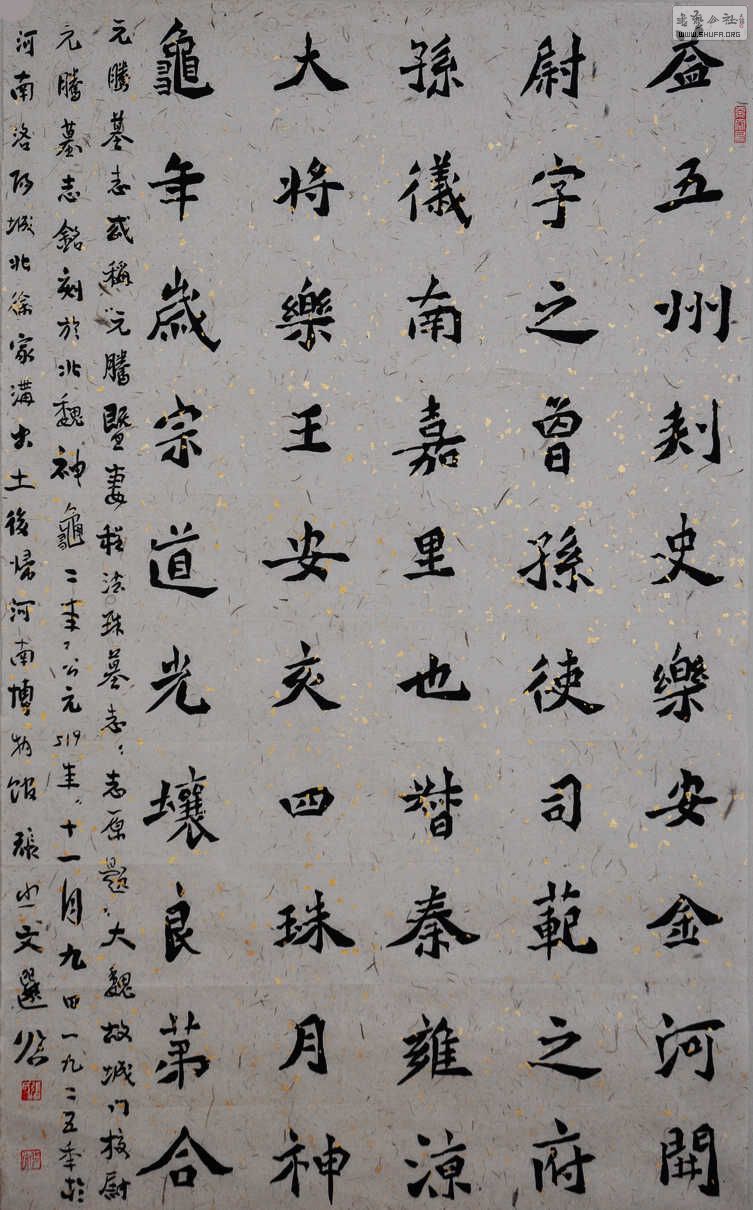 益五州刾史樂安金河開
尉字之曾孫使司範之府
孫儀南嘉里也朁秦雍涼
大将樂王安亥四珠月神
龜年歲宗道光壤良苐合
元騰墓志或稱元騰暨妻程法珠墓志志原題大魏故城门校尉
元騰墓志銘刻於北魏神龜二年公元519年十一月九日一九二五年於
河南洛阳城北徐家溝出土後歸河南博物館
書艺公社
WWW.SHUFA.ORG